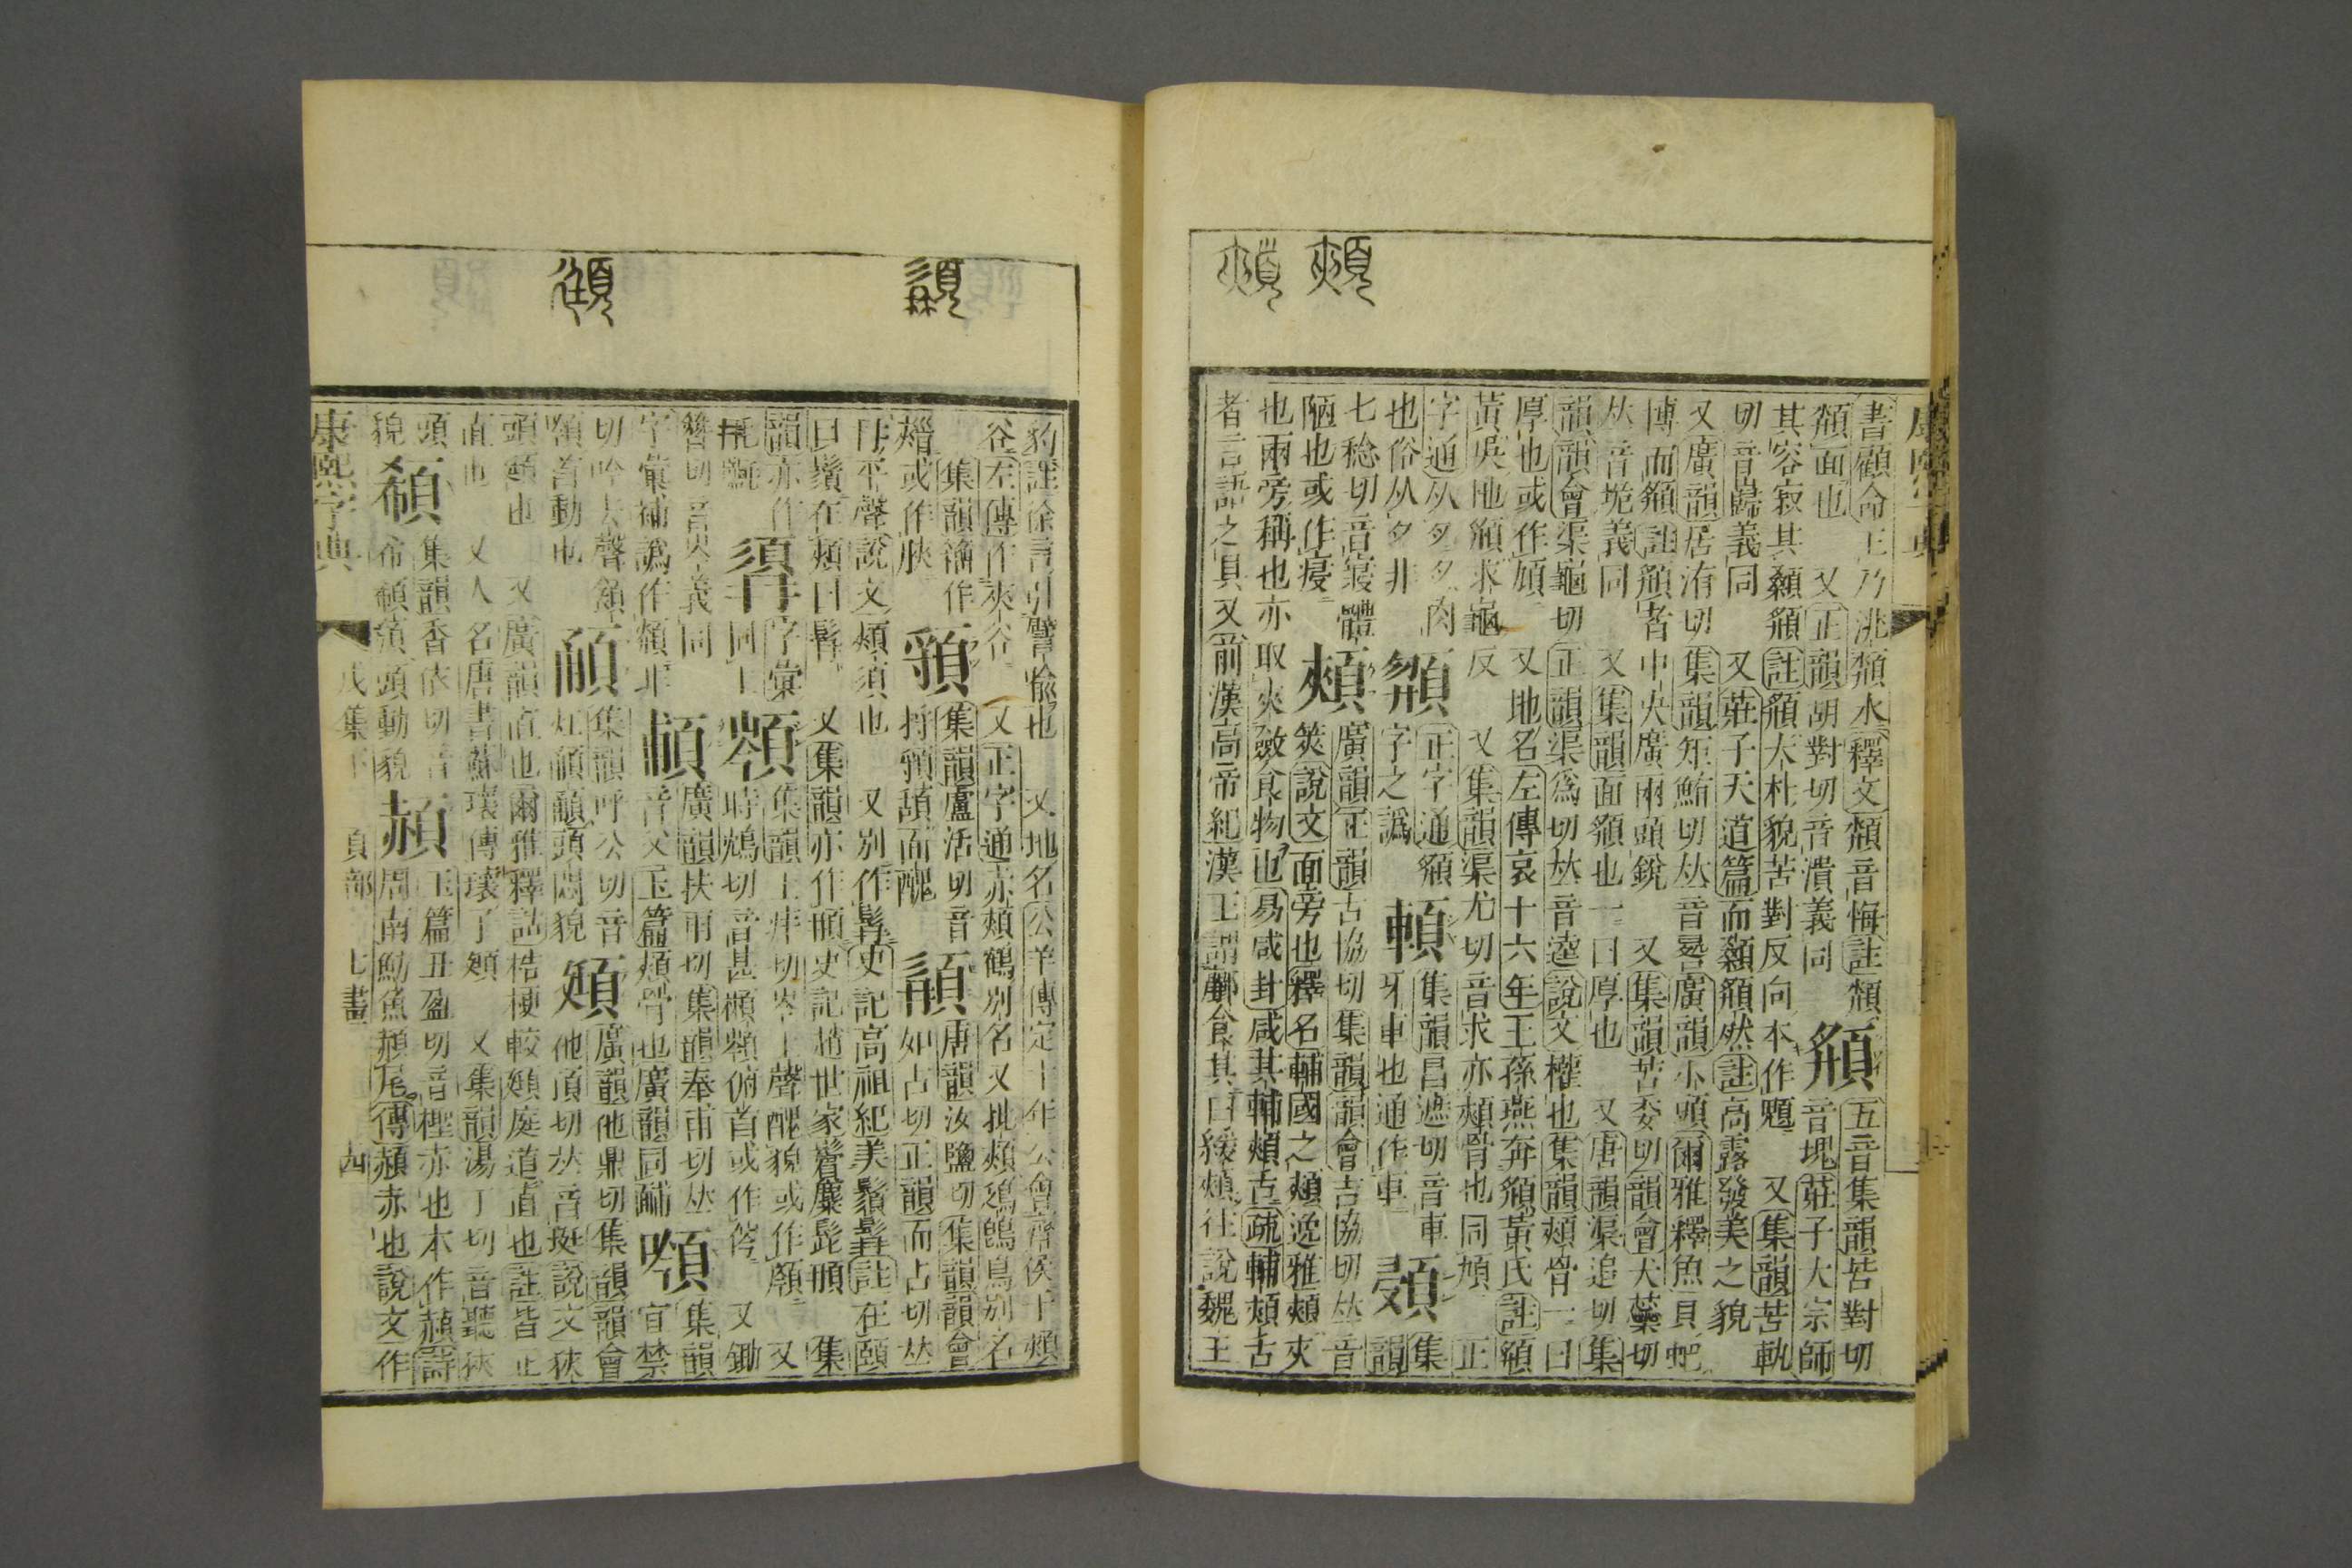 書顧命王乃洮頮水釋文頮音悔註頮
頮面也 又正韻胡對切音潰義同
五音集韻苦對切
音塊莊子大宗師
其容寂其顙頯註頯大朴貌苦對反向本作䫥 又集韻苦軌
切音巋義同 又莊子天道篇而顙頯然註高露發美之貌
又廣韻居洧切集韻矩鮪切𠀤音晷廣韻小頭爾雅釋魚貝蚆
博而頯註頯者中央廣兩頭銳 又集韻苦委切韻會犬蘂切
𠀤音跪義同 又集韻面頯也一曰厚也 又唐韻渠追切集
韻韻會渠龜切正韻渠爲切𠀤音逵說文權也集韻頰骨一曰
厚也或作頄 又地名左傳哀十六年王孫燕奔頯黃氏註頯
黃吳地頯求龜反 又集韻渠尤切音求亦頰骨也同頄 正
字通从夕夕肉
也俗从夕非
正字通頯
字之譌
集韻昌遮切音車
牙車也通作車
集
韻
七稔切音寢體
陋也或作㾛
頰
廣韻正韻古協切集韻韻會吉協切𠀤音
筴說文面旁也釋名輔國之頰逸雅頰夾
也兩旁稱也亦取夾斂食物也易咸卦咸其輔頰舌疏輔頰舌
者言語之具又前漢高帝紀漢王謂酈食其曰緩頰往說魏王
豹註徐言引譬喩也 又地名公羊傳定十年公會齊侯于頰
谷左傳作夾谷 又正字通亦頰鶴別名又批頰鵊鴔鳥別名
集韻籀作
䫡或作脥
頟
集韻盧活切音
捋頟頢面醜
䫇
唐韻汝鹽切集韻韻會
如占切正韻而占切𠀤
冄平聲說文頰須也 又別作髥史記高祖紀美鬚髥註在頤
曰鬚在頰曰髥 又集韻亦作𩑺史記趙世家鬢麋髭𩑺 集
韻亦作
䎃𣬛
字彙
同上
集韻士痒切岑上聲醜貌或作顉 又
時鴆切音甚𩓥頷俯首或作傪 又鋤
簪切音岑義同
字彙補譌作䫈非
䩉
廣韻扶雨切集韻奉甫切𠀤
音父玉篇頰骨也廣韻同酺
集韻
宜禁
切吟去聲頷
頷首動也
集韻呼公切音
灴䫹䫺頭悶貌
頲
廣韻他鼎切集韻韻會
他頂切𠀤音挺說文狹
頭頲也 又廣韻直也爾雅釋詁梏梗較頲庭道直也註皆正
直也 又人名唐書蘇瓌傳瓌子頲 又集韻湯丁切音聽狹
頭
貌
集韻香依切音
希䫣顝頭動貌
䞓
玉篇丑盈切音檉赤也本作赬詩
周南魴魚赬尾傳赬赤也說文作
康熙字典
戌集下
頁部
七畫
四